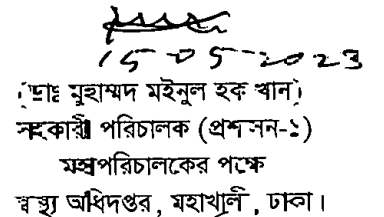 15-05-2023
(ডাঃ মুহাম্মদ মইনুল হক খান)
সহকারী পরিচালক (প্রশাসন-১)
মহাপরিচালকের পক্ষে
স্বাস্থ্য অধিদপ্তর, মহাখালী, ঢাকা।